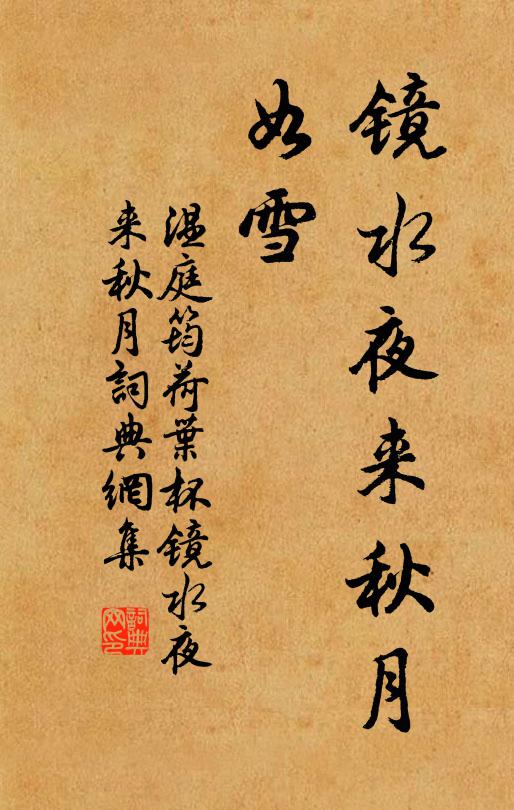 镜水夜来秋月
如雪
温庭筠荷葉杯镜水夜
来秋月詞典網集
詞典
网印